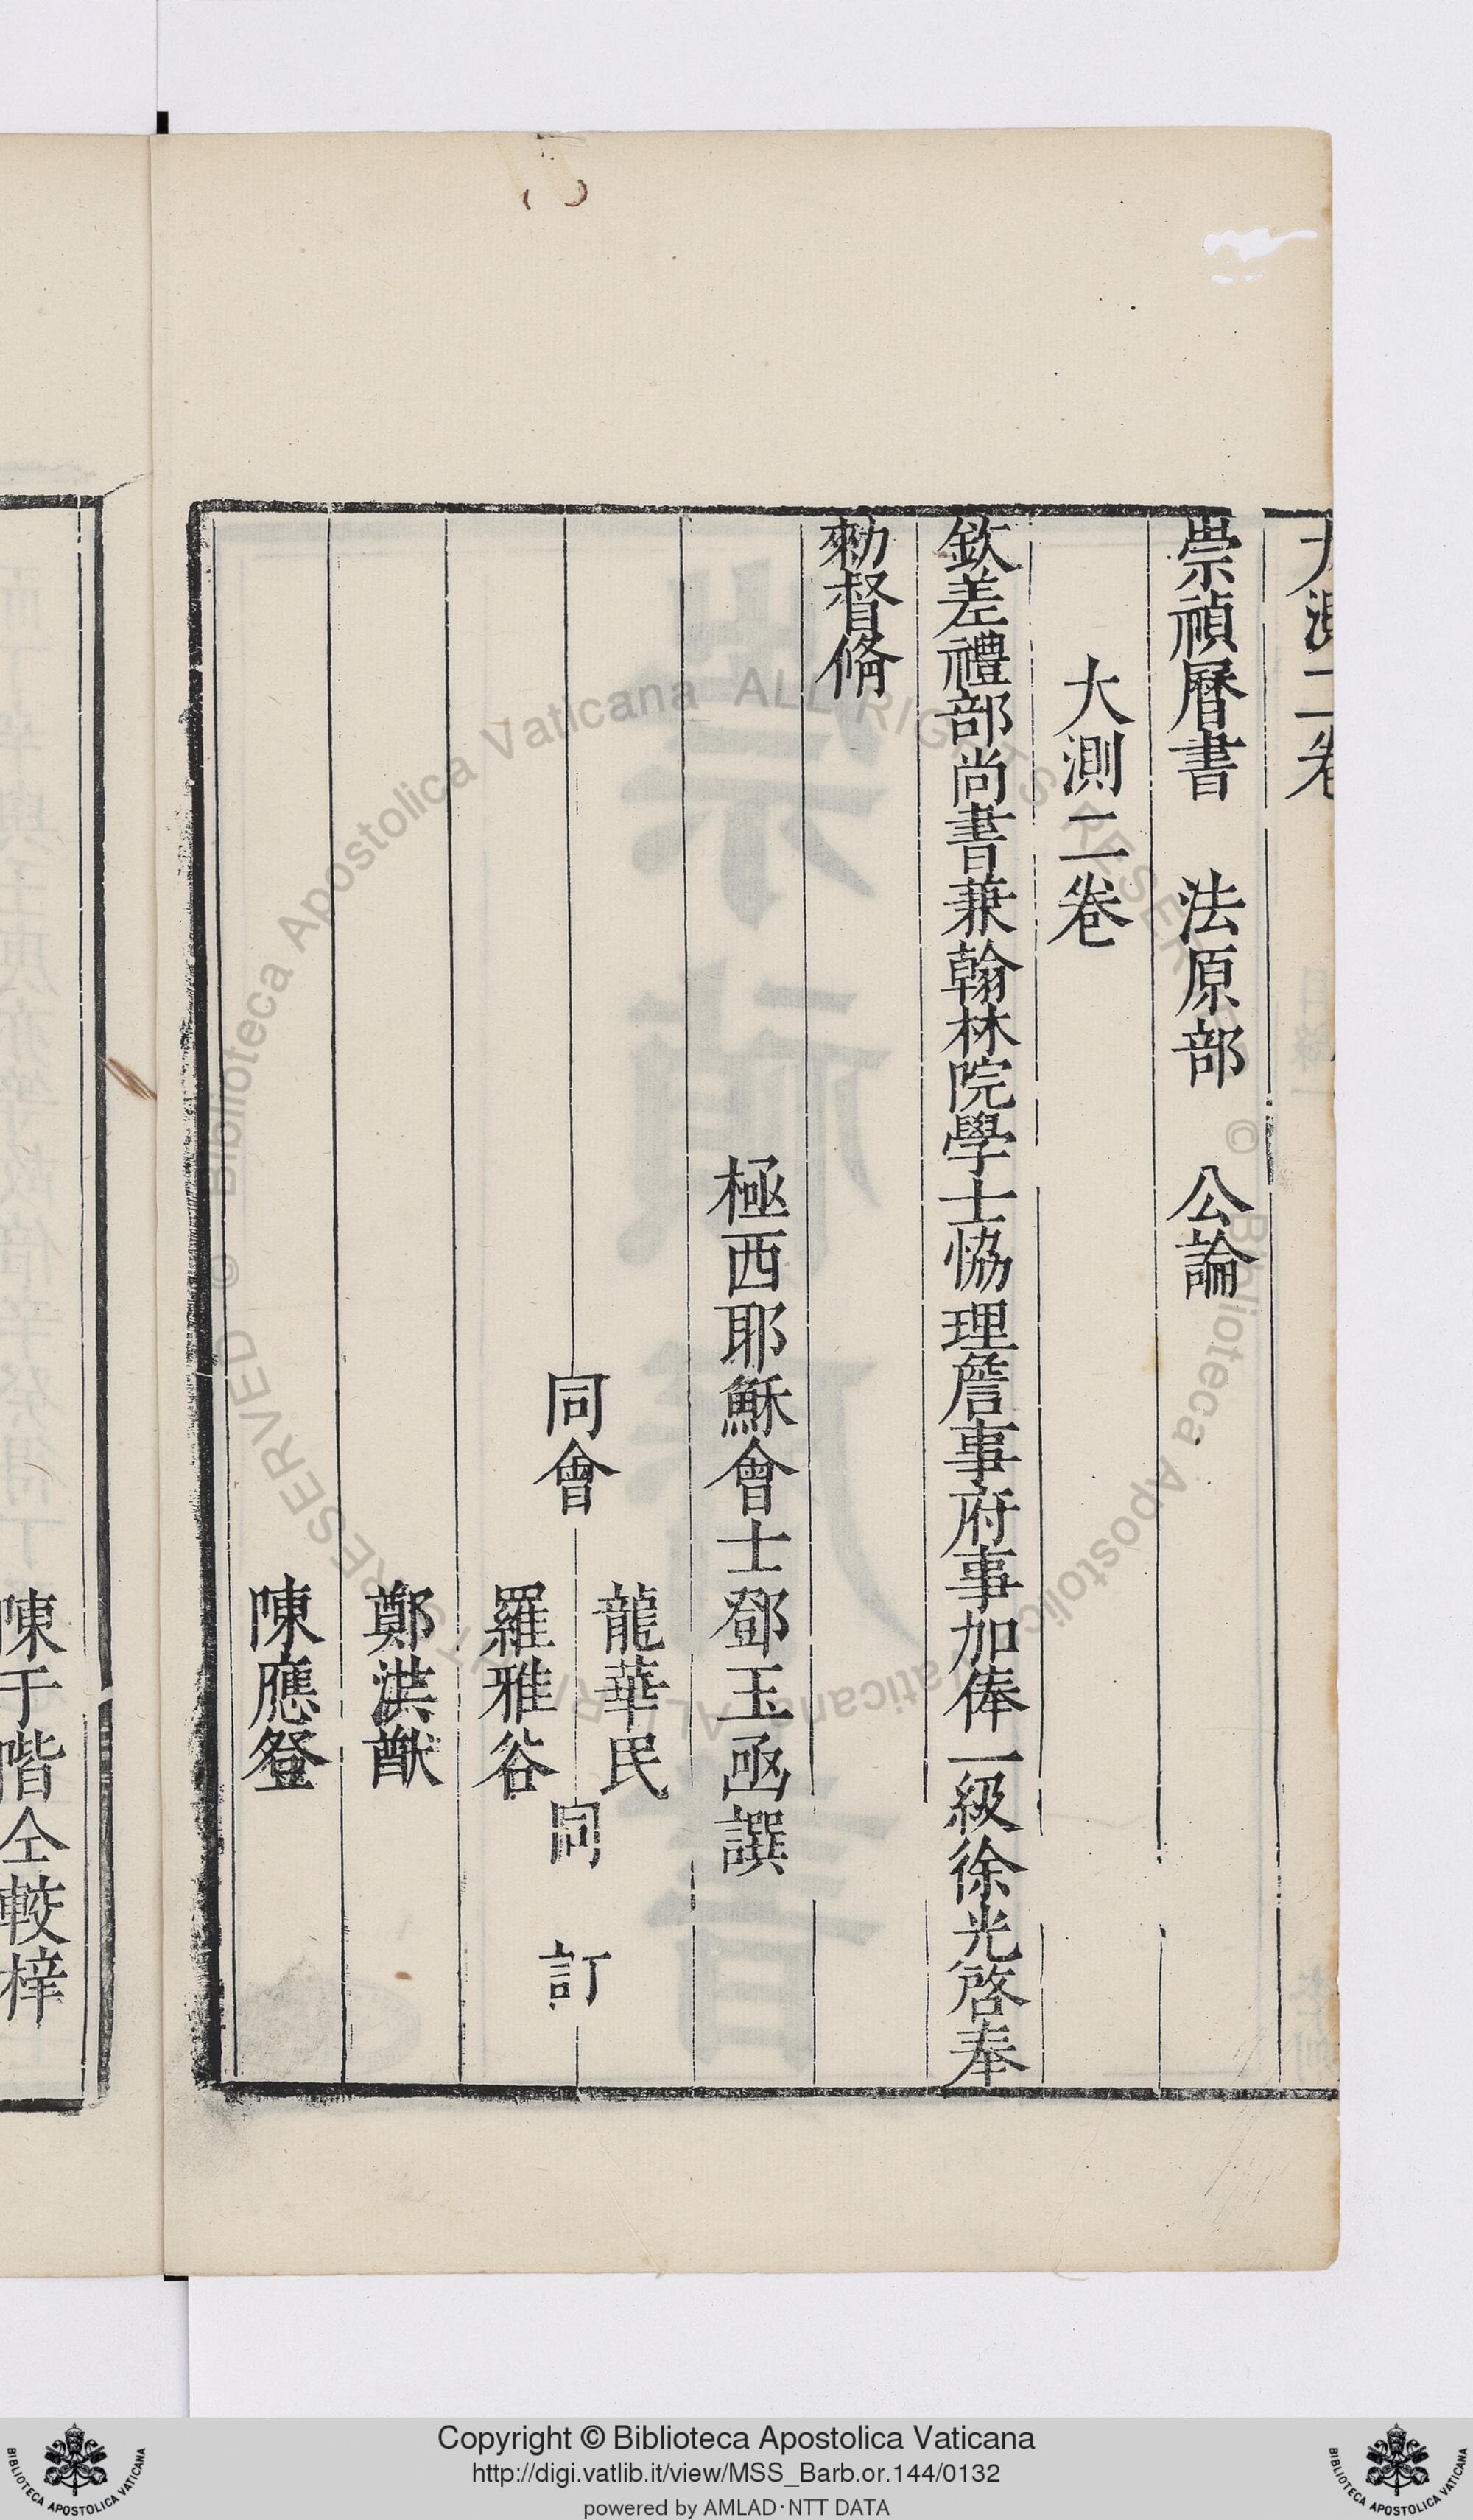 大測二卷
崇禎曆書　法原部　公論
大測二卷
欽差禮部尚書兼翰林院學士恊理詹事府事加俸一級徐光啓奉
勑督脩
極西耶穌會士鄧玉函譔
同會
龍華民
羅雅谷
同訂
鄭洪猷
陳應登
陳于階仝較梓
© Biblioteca Apostolica Vaticana ALL RIGHTS RESERVED
© Biblioteca Apostolica Vaticana ALL RIGHTS RESERVED
Copyright © Biblioteca Apostolica Vaticana
http://digi.vatlib.it/view/MSS_Barb.or.144/0132
powered by AMLAD·NTT DATA
BIBLIOTECA APOSTOLICA VATICANA
BIBLIOTECA APOSTOLICA VATICANA